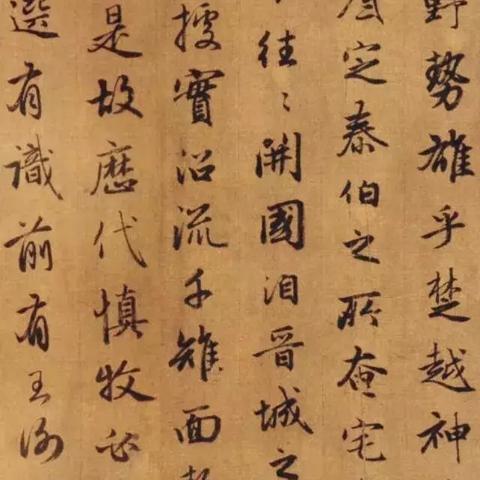 野勢雄乎楚越神
定泰伯之所奄宅
往〻開國洎晉城之
實沿流千雉面
是故歷代慎牧必
選有識前有王